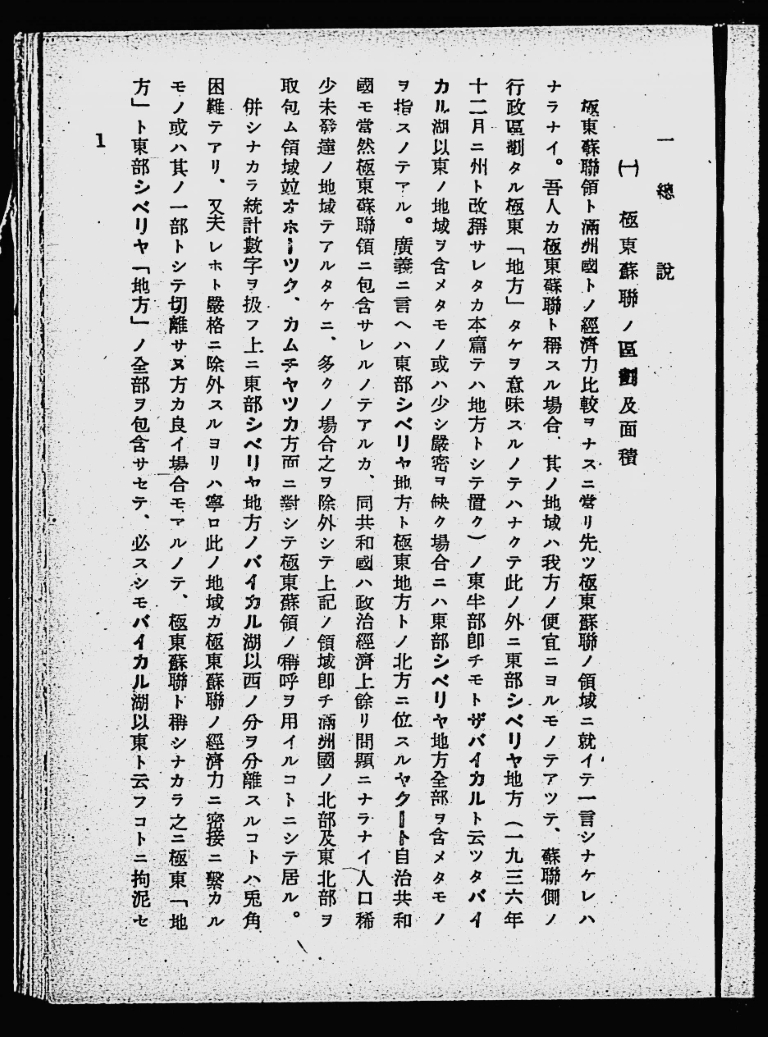 一總說
㈠極東蘇聯ノ區劃及面積
極東蘇聯領ト滿洲國トノ經濟力比較ヲナスニ當リ先ツ極東蘇聯ノ領域ニ就イテ一言シナケレハ
ナラナイ。吾人カ極東蘇聯ト稱スル場合、其ノ地域ハ我方ノ便宜ニヨルモノテアツテ、蘇聯側ノ
行政區劃タル極東「地方」タケヲ意味スルノテハナクテ此ノ外ニ東部シベリヤ地方（一九三六年
十二月ニ州ト改稱サレタカ本篇テハ地方トシテ置ク）ノ東半部卽チモトザバイカルト云ツタバイ
カル湖以東ノ地域ヲ含メタモノ或ハ少シ嚴密ヲ缺ク場合ニハ東部シベリヤ地方全部ヲ含メタモノ
ヲ指スノテアル。廣義ニ言ヘハ東部シベリヤ地方ト極東地方トノ北方ニ位スルヤクート自治共和
國モ當然極東蘇聯領ニ包含サレルノテアルカ、同共和國ハ政治經濟上餘リ問題ニナラナイ人口稀
少未發達ノ地域テアルタケニ、多クノ場合之ヲ除外シテ上記ノ領域卽チ滿洲國ノ北部及東北部ヲ
取包ム領域竝オホーツク、カムチヤツカ方面ニ對シテ極東蘇領ノ稱呼ヲ用イルコトニシテ居ル。
併シナカラ統計數字ヲ扱フ上ニ東部シベリヤ地方ノバイカル湖以西ノ分ヲ分離スルコトハ兎角
困難テアリ、又夫レホト嚴格ニ除外スルヨリハ寧ロ此ノ地域カ極東蘇聯ノ經濟力ニ密接ニ繫カル
モノ或ハ其ノ一部トシテ切離サヌ方カ良イ場合モアルノテ、極東蘇聯ト稱シナカラ之ニ極東「地
方」ト東部シベリヤ「地方」ノ全部ヲ包含サセテ、必スシモバイカル湖以東ト云フコトニ拘泥セ
1